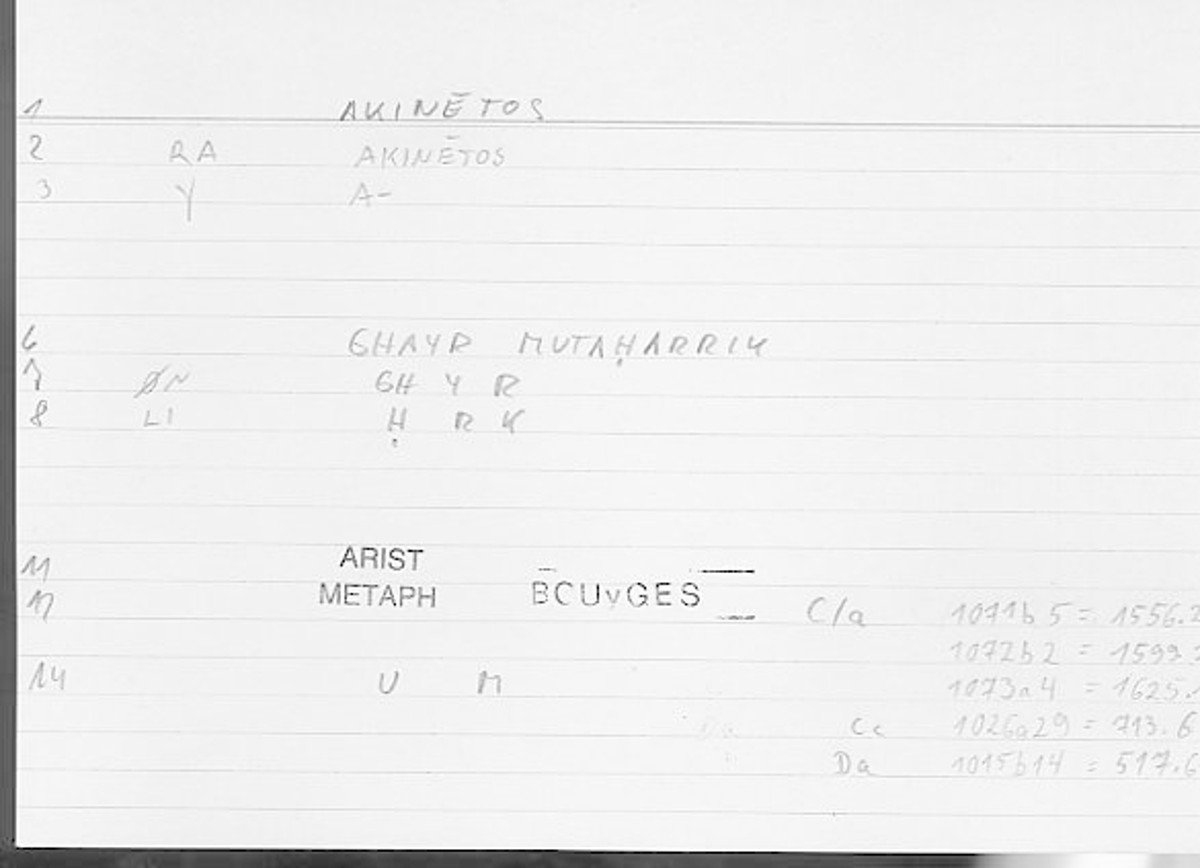 1 AKINĒTOS
2 RA AKINĒTOS
3 Y A-
6 GHAYR MUTAḤARRIK
7 ØN GH Y R
8 LI Ḥ R K
11 ARIST
12 METAPH BCUvGES C/a 1071b5 = 1556.2
1072b2 = 1599
14 U M 1073a4 = 1625.
Cc 1026a29 = 713.6
Da 1015b14 = 517.6